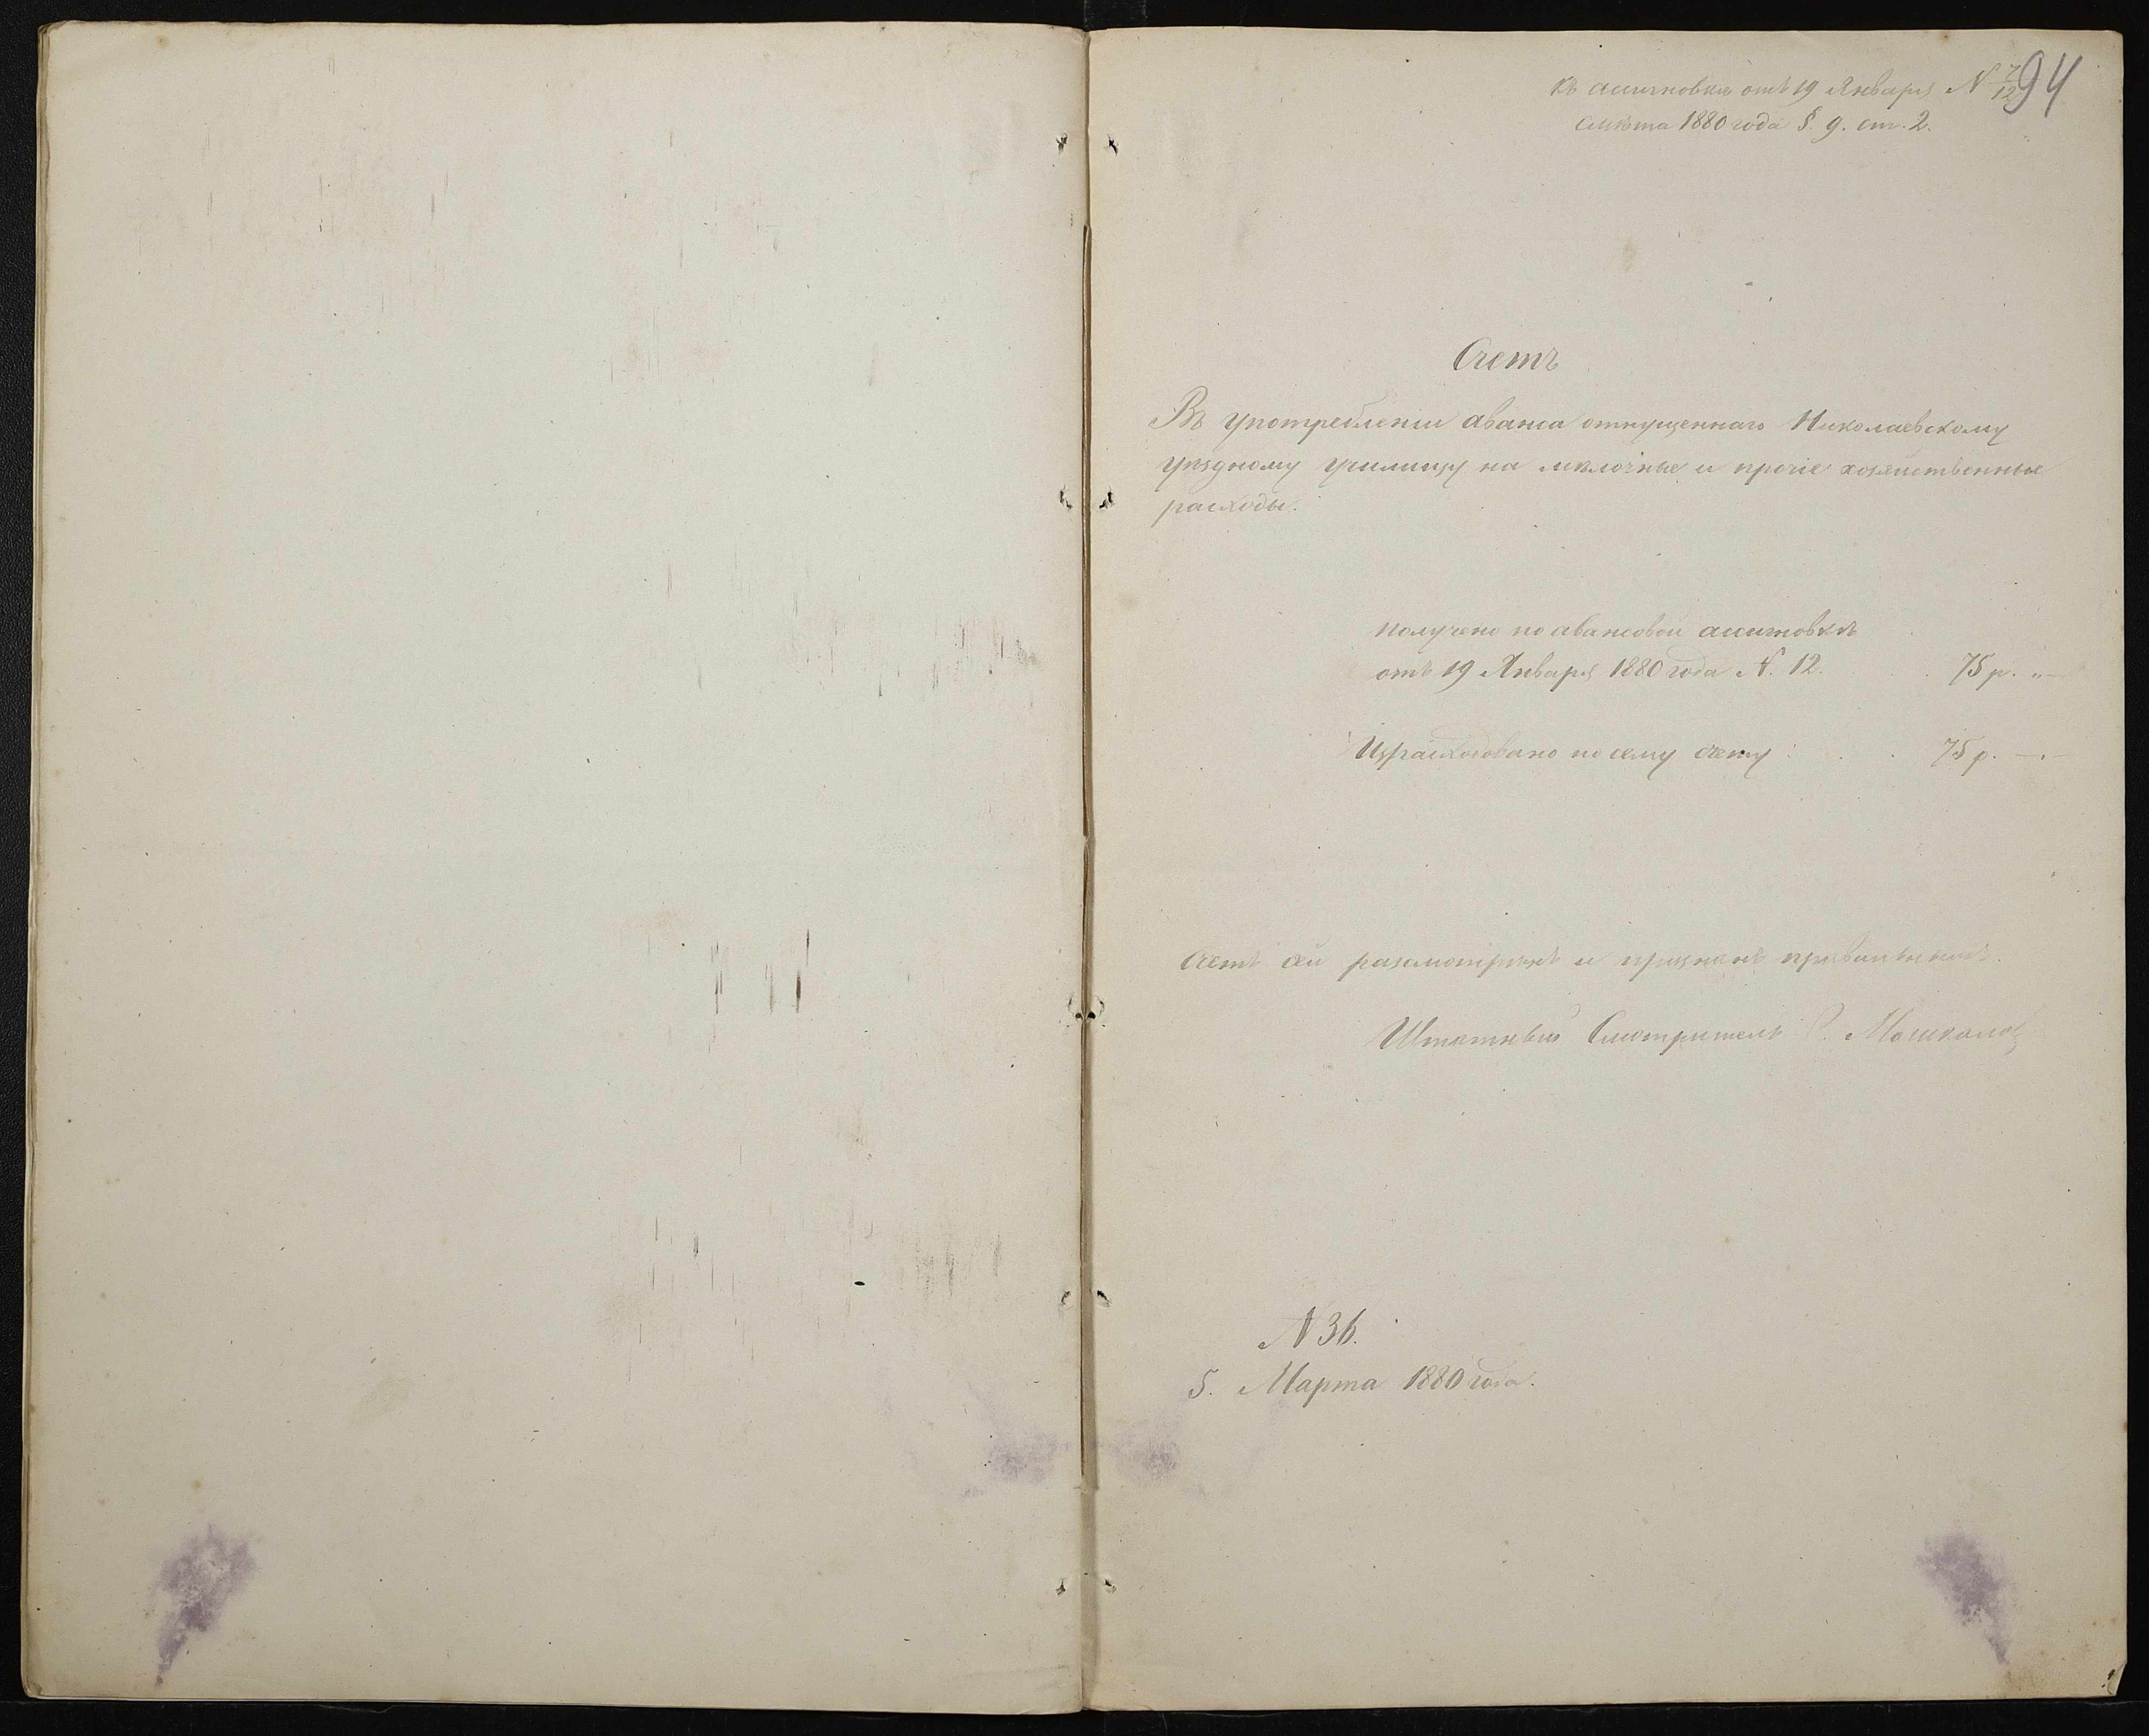 94
Къ ассигновкѣ отъ 19 Января N 7/12
Смѣта 1880 года §. 9. ст. 2.
Счетъ
Въ употребленіи аванса отпущеннаго Николаевскому
уѣздному училищу на мелочные и прочіе хозяйственные
расходы.
Получено по авансовой ассигновкѣ
отъ 19 Января 1880 года N. 12. 75 р. "—
Израсходовано по сему счету: 75 р. —
Счетъ сей разсмотрѣнъ и признанъ правильнымъ.
Штатный Смотритель Мошкалов
N 36.
5. Марта 1880 года.